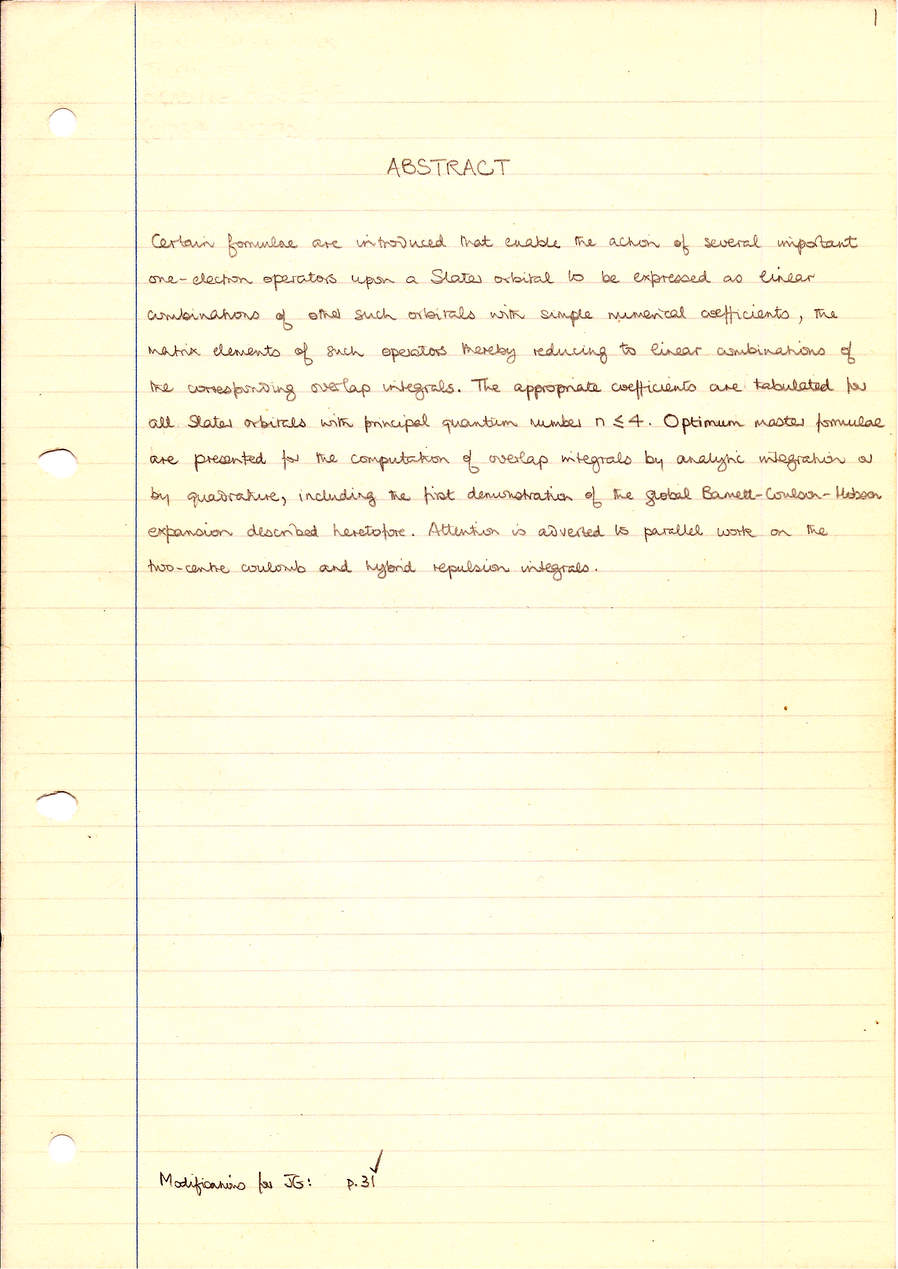 1
ABSTRACT
Certain formulae are introduced that enable the action of several important
one-electron operators upon a Slater orbital to be expressed as linear
combinations of other such orbitals with simple numerical coefficients, the
matrix elements of such operators thereby reducing to linear combinations of
the corresponding overlap integrals. The appropriate coefficients are tabulated for
all Slater orbitals with principal quantum number n ≤ 4. Optimum master formulae
are presented for the computation of overlap integrals by analytic integration or
by quadrature, including the first demonstration of the global Barnett-Coulson-Hobson
expansion described heretofore. Attention is adverted to parallel work on the
two-centre coulomb and hybrid repulsion integrals.
Modifications for JG: p.31 ✓